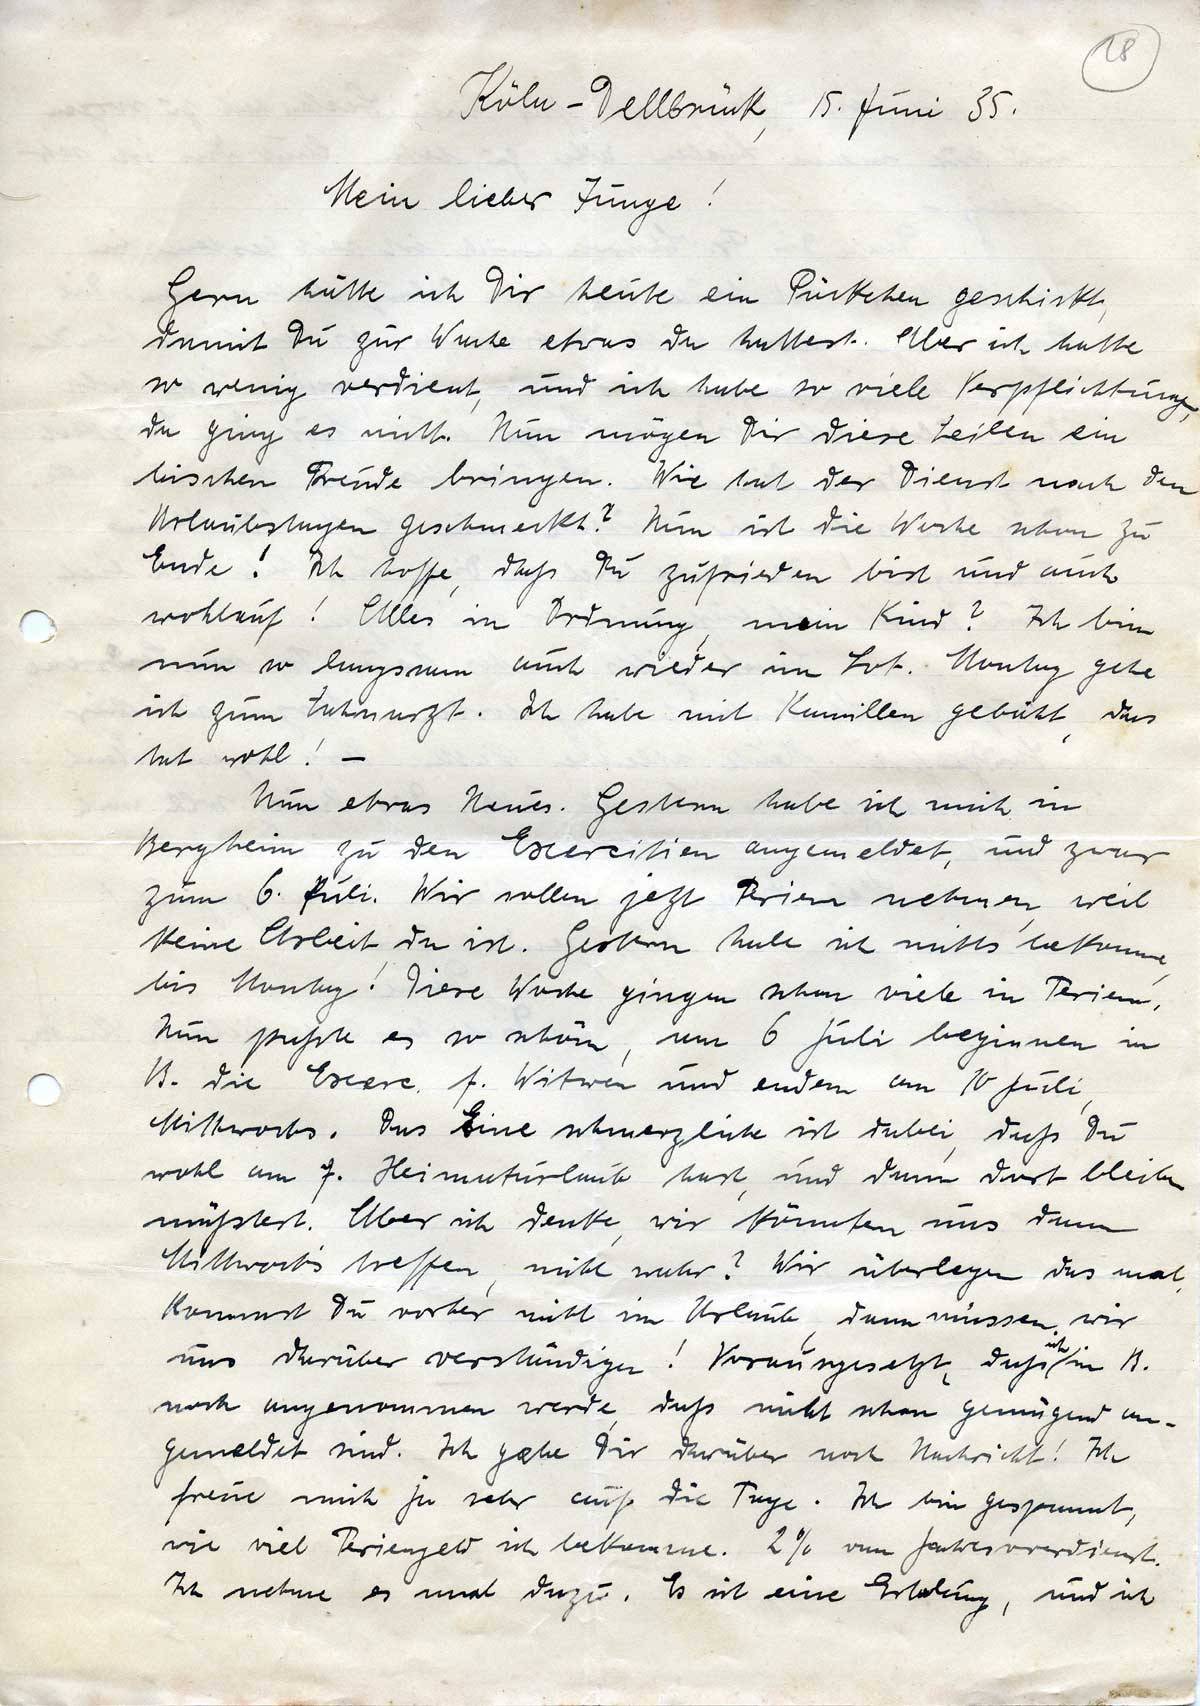 18
Köln-Dellbrück, 15. Juni 35.
Mein lieber Junge!
Gern hätte ich Dir heute ein Päckchen geschickt,
damit Du zur Wache etwas da hattest. Aber ich hatte
so wenig verdient, und ich habe so viele Verpflichtungen,
da ging es nicht. Nun mögen Dir diese Zeilen ein
bischen Freude bringen. Wie hat der Dienst nach den
Urlaubstagen geschmeckt? Nun ist die Woche schon zu
Ende! Ich hoffe, daß Du zufrieden bist und auch
wohlauf! Alles in Ordnung, mein Kind? Ich bin
nun so langsam auch wieder im Lot. Montag gehe
ich zum Zahnarzt. Ich habe mit Kamillen gebäht, das
tat wohl! –
Nun etwas Neues. Gestern habe ich mich in
Bergheim zu den Exercitien angemeldet, und zwar
zum 6. Juli. Wir sollen jetzt Ferien nehmen, weil
keine Arbeit da ist. Gestern habe ich nichts bekomme,
bis Montag! Diese Woche gingen schon viele in Ferien.
Nun paßte es so schön, am 6 Juli beginnen in
B. die Exerc. f. Witwen und enden am 10 Juli,
Mittwochs. Das Eine schmerzliche ist dabei, daß Du
wohl am 7. Heimaturlaub hast, und dann dort bleiben
müßtest. Aber ich denke, wir könnten uns dann
Mittwochs treffen, nicht wahr? Wir überlegen das mal.
Kommst Du vorher nicht in Urlaub, dann müssen wir
uns darüber verständigen! Vorausgesetzt, daß ich in B.
noch angenommen werde, daß nicht schon genügend an-
gemeldet sind. Ich gebe Dir darüber noch Nachricht! Ich
freue mich ja sehr auf die Tage. Ich bin gespannt,
wie viel Feriengeld ich bekomme. 2% vom Jahresverdienst.
Ich nehme es mal dazu. Es ist eine Erholung, und ich